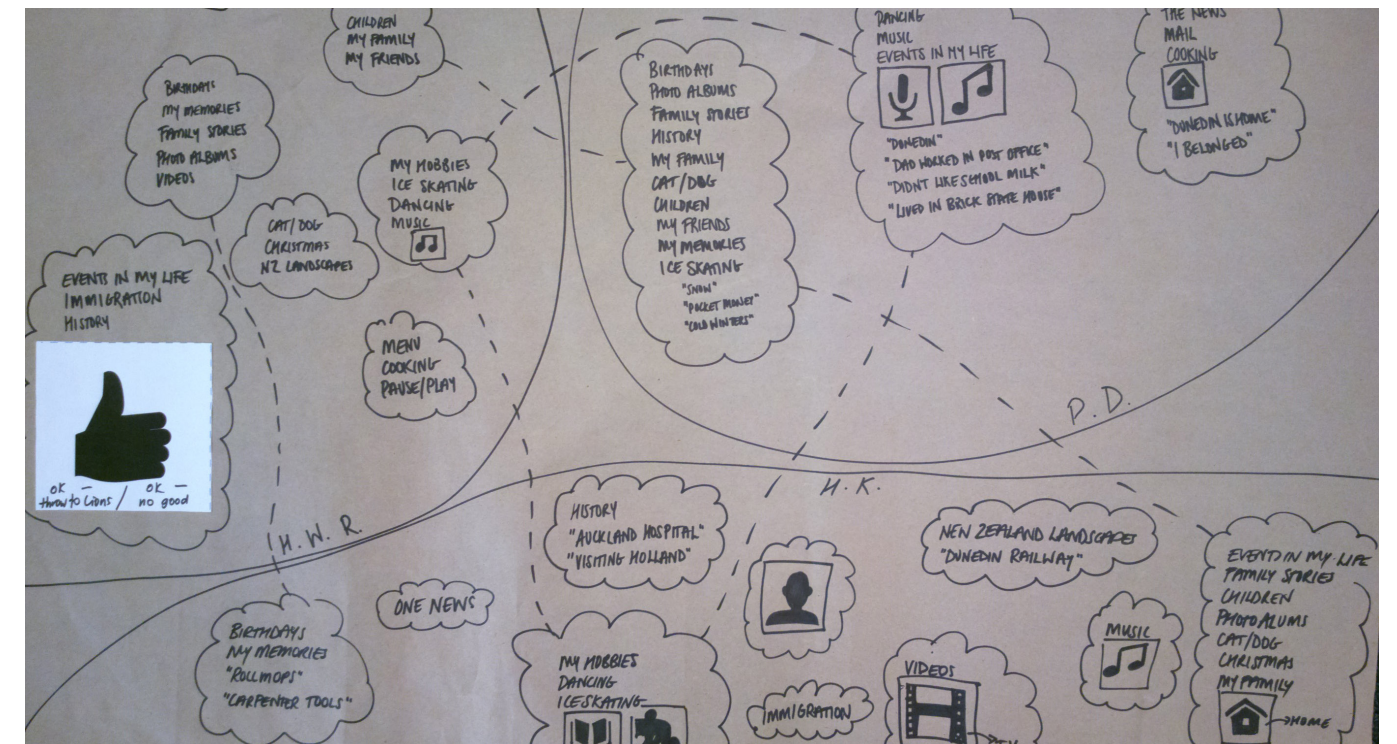 CHILDREN
MY FAMILY
MY FRIENDS
BIRTHDAYS
MY MEMORIES
FAMILY STORIES
PHOTO ALBUMS
VIDEOS
MY HOBBIES
ICE SKATING
DANCING
MUSIC
CAT/DOG
CHRISTMAS
NZ LANDSCAPES
EVENTS IN MY LIFE
IMMIGRATION
HISTORY
OK — / OK —
throw to Lions / no good
MENU
COOKING
PAUSE/PLAY
H.W.R.
BIRTHDAYS
PHOTO ALBUMS
FAMILY STORIES
HISTORY
MY FAMILY
CAT/DOG
CHILDREN
MY FRIENDS
MY MEMORIES
ICE SKATING
"SNOW"
"POCKET MONEY"
"COLD WINTERS"
DANCING
MUSIC
EVENTS IN MY LIFE
"DUNEDIN"
"DAD WORKED IN POST OFFICE"
"DIDN'T LIKE SCHOOL MILK"
"LIVED IN BRICK STATE HOUSE"
THE NEWS
MAIL
COOKING
"DUNEDIN IS HOME"
"I BELONGED"
P.D.
H.K.
BIRTHDAYS
MY MEMORIES
"ROLLMOPS"
"CARPENTER TOOLS"
ONE NEWS
HISTORY
"AUCKLAND HOSPITAL"
"VISITING HOLLAND"
MY HOBBIES
DANCING
ICE SKATING
IMMIGRATION
VIDEOS
NEW ZEALAND LANDSCAPES
"DUNEDIN RAILWAY"
MUSIC
EVENT IN MY LIFE
FAMILY STORIES
CHILDREN
PHOTO ALUMS
CAT/DOG
CHRISTMAS
MY FAMILY
→HOME